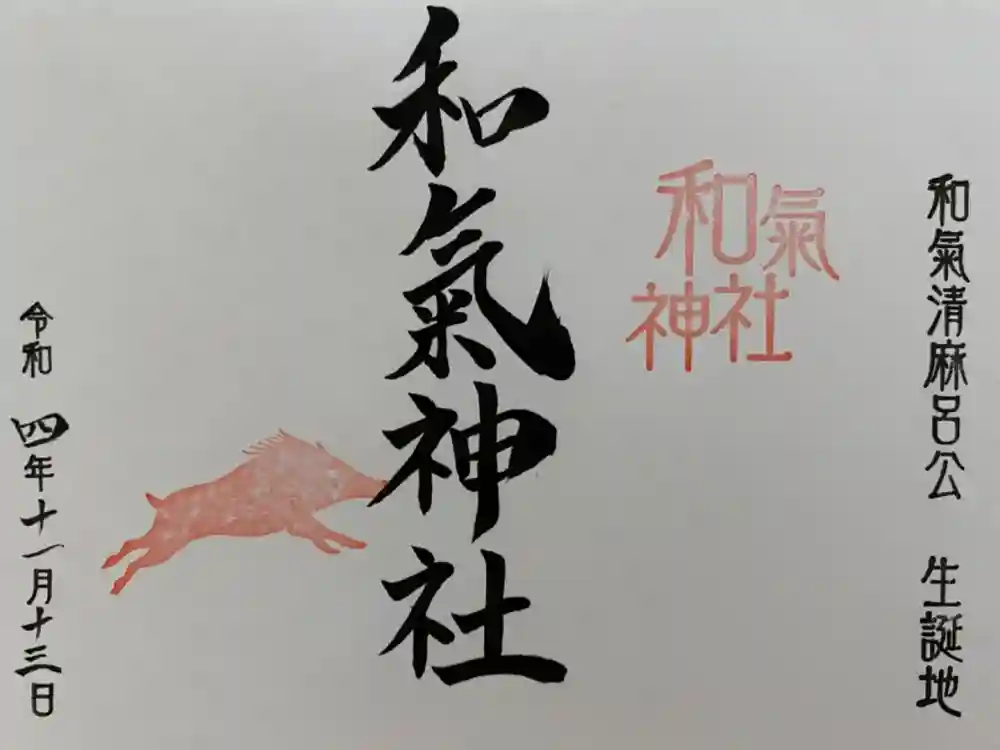 和氣清麻呂公 生誕地
和氣
神社
和氣神社
令和 四年十一月十三日